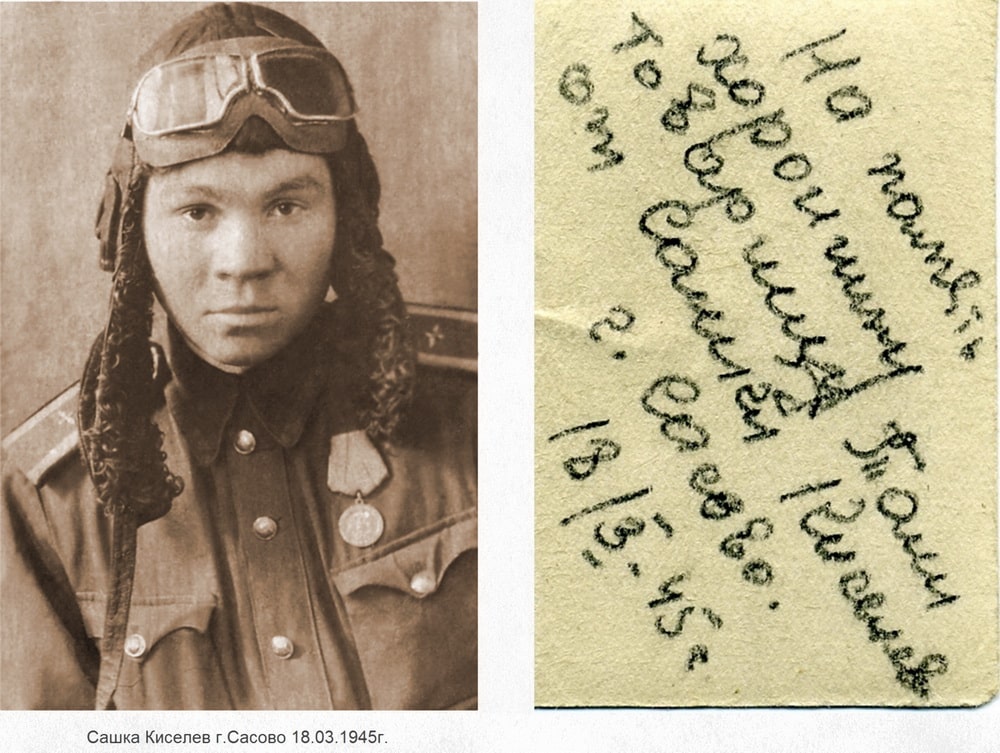 На память
хорошим
товарищу Тани
от Сашки Киселев
г. Сасово.
18/III-45г
Сашка Киселев г.Сасово 18.03.1945г.